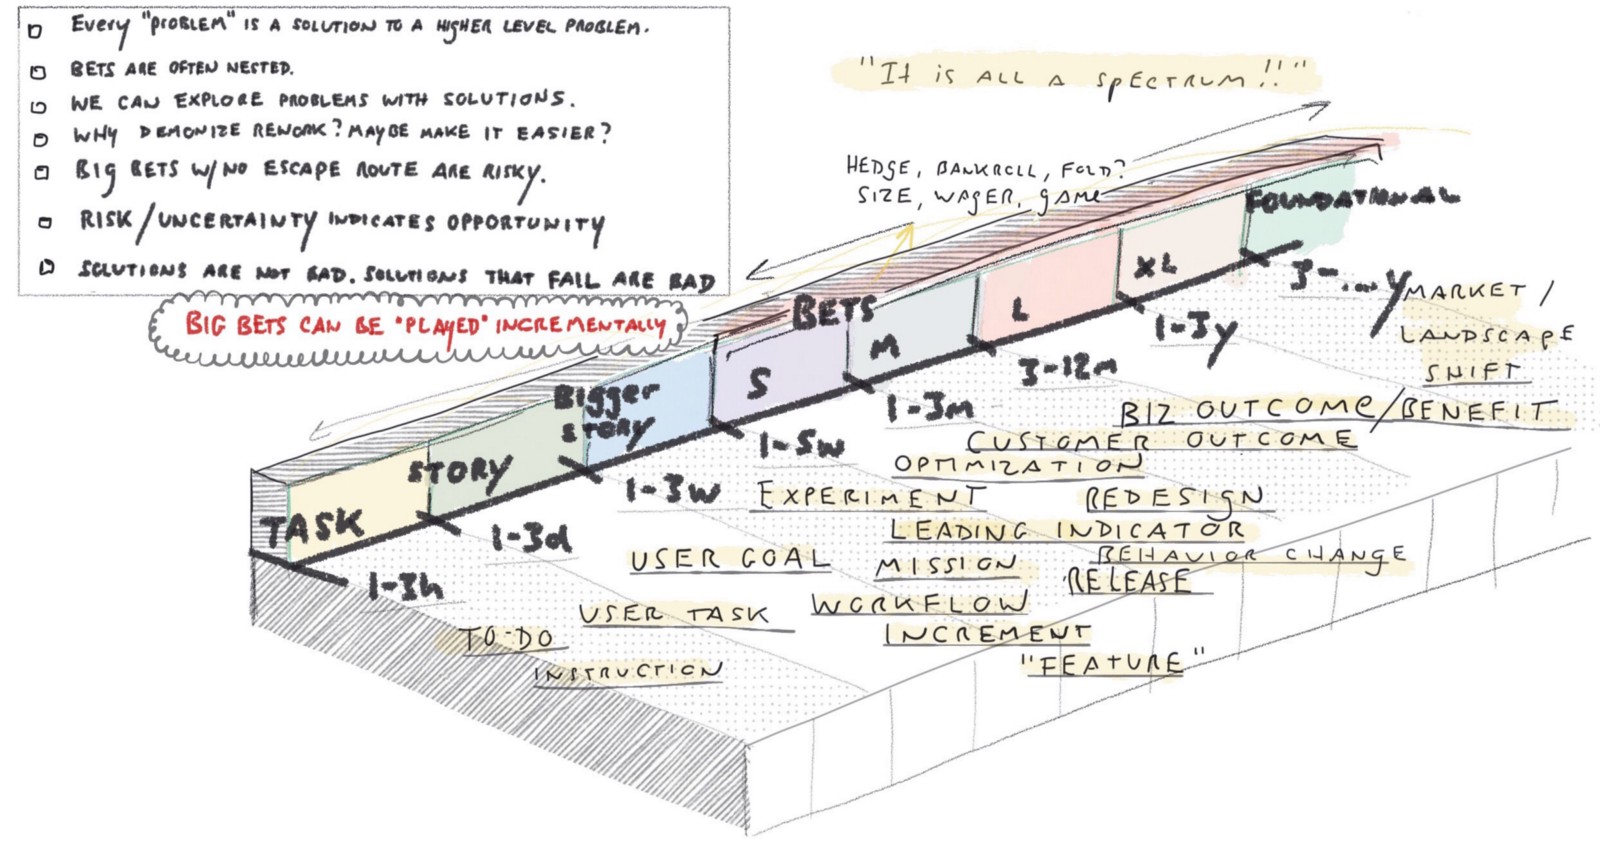 Every "PROBLEM" IS A SOLUTION TO A HIGHER LEVEL PROBLEM.
BETS ARE OFTEN NESTED.
WE CAN EXPLORE PROBLEMS WITH SOLUTIONS.
WHY DEMONIZE REWORK? MAYBE MAKE IT EASIER?
Big BETS W/ NO ESCAPE ROUTE ARE RISKY.
RISK/UNCERTAINTY INDICATES OPPORTUNITY
SOLUTIONS ARE NOT BAD. SOLUTIONS THAT FAIL ARE BAD
BIG BETS CAN BE "PLAYED" INCREMENTALLY
"It is ALL A SPECTRUM!!"
HEDGE, BANKROLL, FOLD?
SIZE, WAGER, GAME
FOUNDATIONAL
XL
L
BETS
M
S
Bigger
STORY
STORY
TASK
3-....y
1-3y
3-12m
1-3m
1-5w
1-3w
1-3d
1-3h
MARKET /
LANDSCAPE
SHIFT
BIZ OUTCOME/BENEFIT
CUSTOMER OUTCOME
OPTIMIZATION
EXPERIMENT
REDESIGN
LEADING INDICATOR
BEHAVIOR CHANGE
USER GOAL
MISSION
RELEASE
WORKFLOW
USER TASK
INCREMENT
TO-DO
"FEATURE"
INSTRUCTION